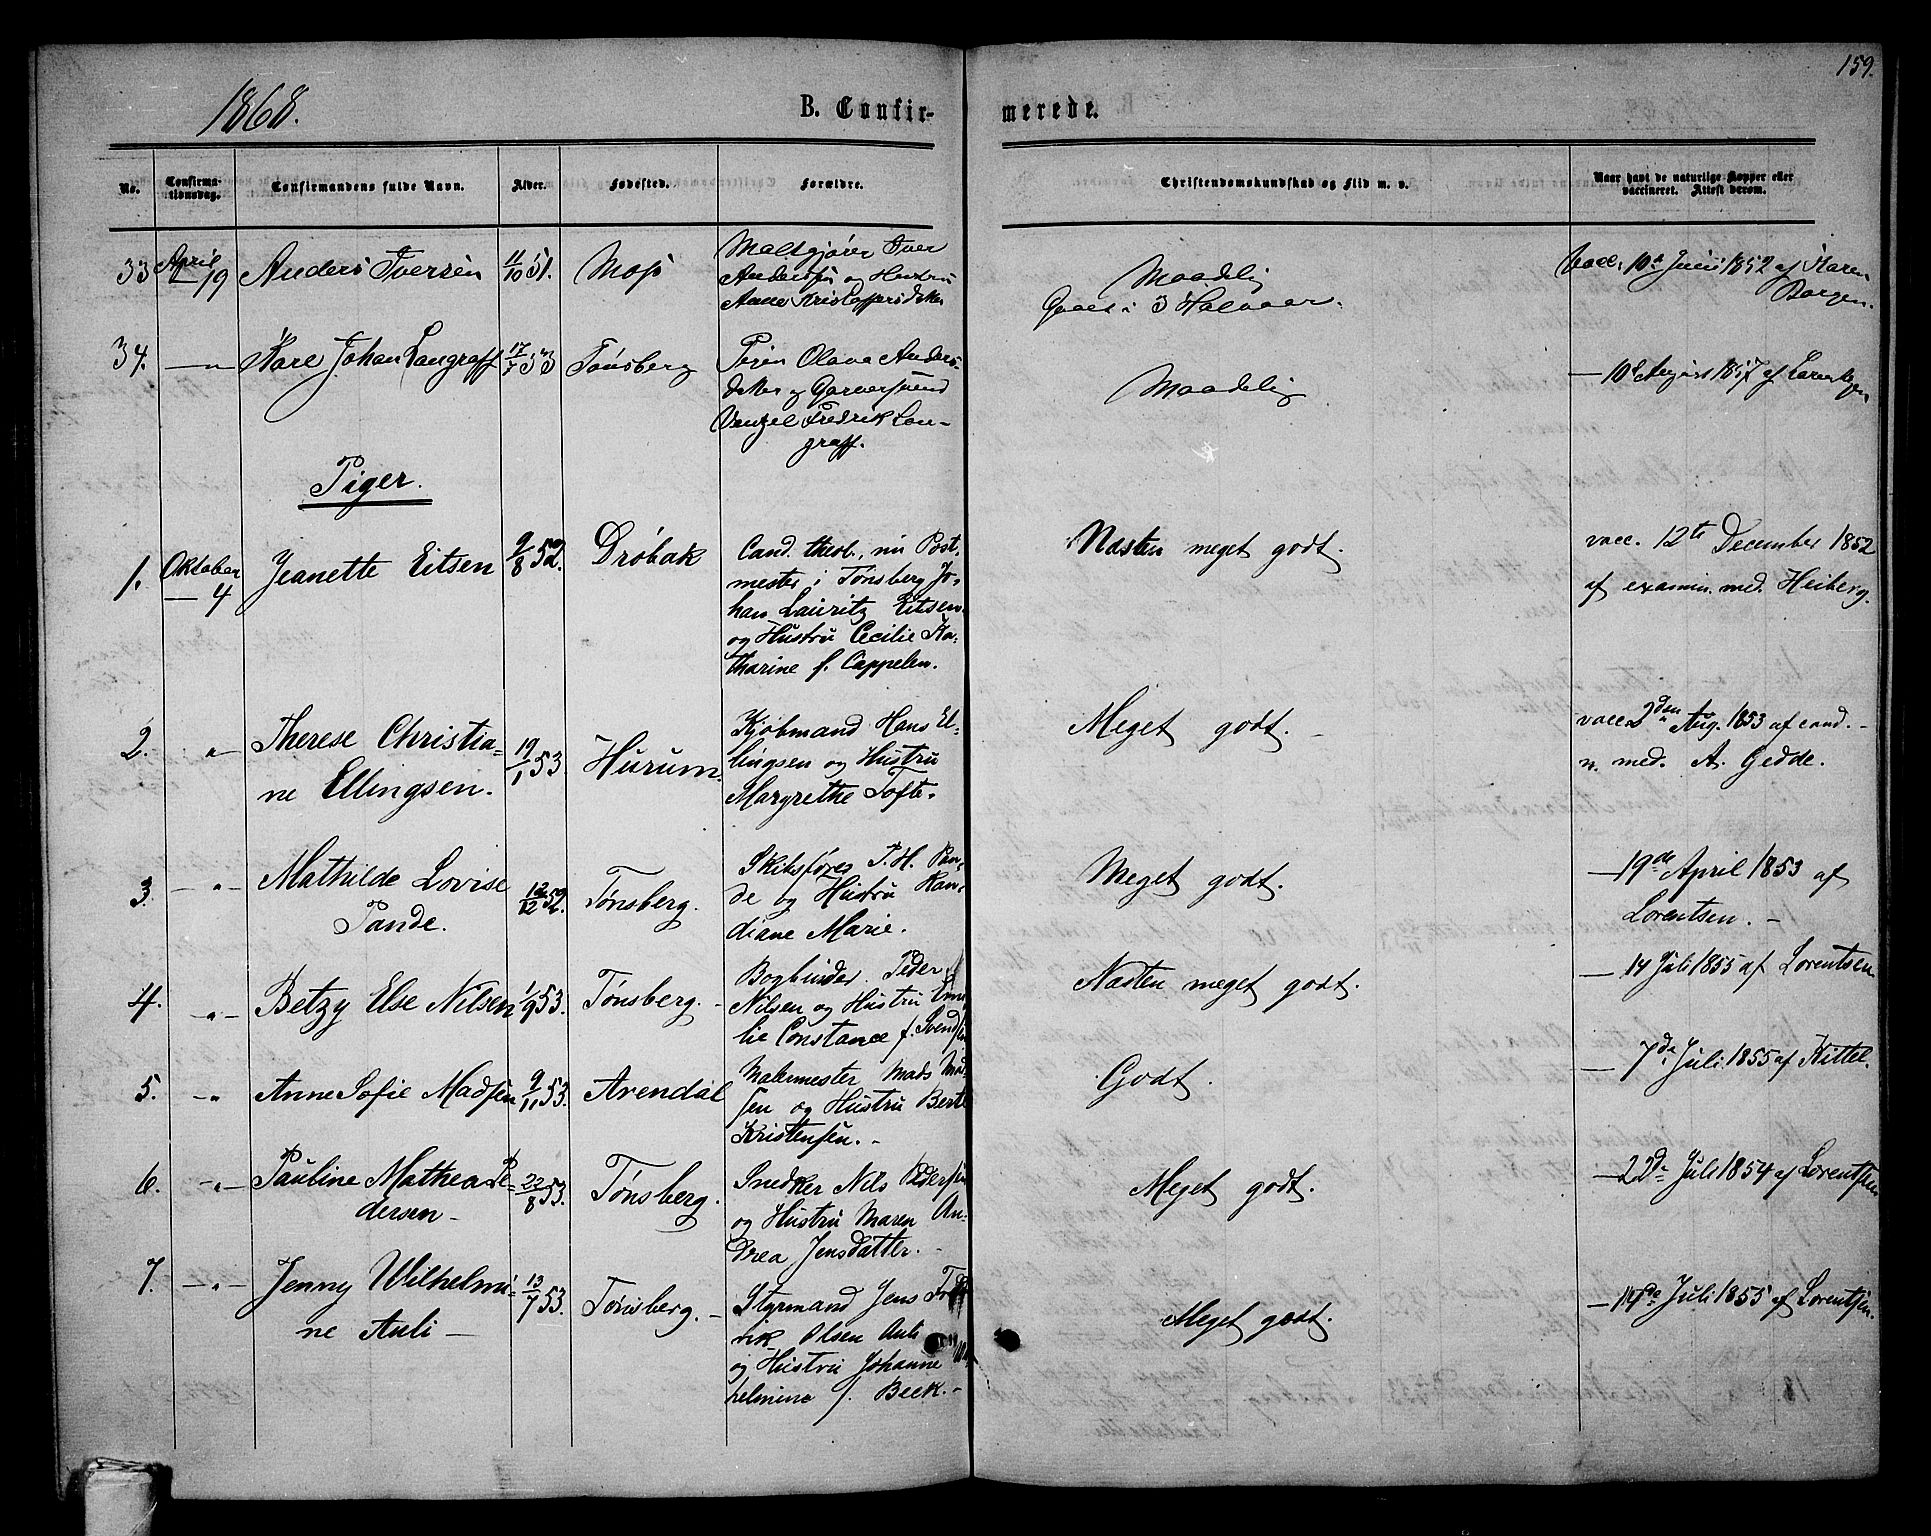 159.
1868.
B. Confir-
merede.
No.
Confirma-
tionsdag.
Confirmandens fulde Navn.
Alder.
Fødested.
Forældre.
Christendomskundskab og Flid m. v.
Naar havt de naturlige Kopper eller
vaccineret. Attest derom.
33 April 19 Anders Iversen 11/10 51. Moss
Iver
Andersen og Hustru
Maadelig
34. — " — Kare Johan Langraff 17/7 53 Tønsberg
Pigen Olava Anders-
Venzel Fredrik Lan-
graff.
Maadelig
Piger.
1. Oktober
— 4 Jeanette Eitsen 9/8 52. Drøbak
Cand. theol., nu Post-
mester i Tønsberg Jo-
han Lauritz Eitsen
og Hustru Cecilie Ka-
tharine f. Cappelen.
Næsten meget godt.
vacc. 12te December 1852
af examin. med. Heiberg.
2. " — Therese Christia-
ne Ellingsen. 19/1 53. Hurum
Kjøbmand Hans El-
lingsen og Hustru
Margrethe Tofte.
Meget godt. -
vacc. 2den Aug. 1853 af cand. -
n. med. A. Gedde.
3. — " — Mathilde Lovise
Pande. 12/12 52. Tønsberg.
Skibsfører P. H. Pan-
de og Hustru Kan-
diane Marie.
Meget godt.
— 19de April 1853 af
Lorentsen. -
4. — " — Betzy Else Nilsen 1/9 53. Tønsberg. -
Bogbinder Peder
Nilsen og Hustru
lie Constance f. Svendsen
Næsten meget godt.
— 14 Juli 1855 af Lorentsen
5. — " — Anne Sofie Madsen 9/11 53. Arendal
Malermester Mads Mad-
sen og Hustru
Kristensen. -
Godt.
— 7de Juli 1855 af Kittel.
6. — " — Pauline Mathea Pe-
dersen - 22/8 53. Tønsberg.
Snedker Nils Pedersen
og Hustru Maren An-
drea Jensdatter. -
Meget godt.
— 22de Juli 1854 af Lorentsen
7. — " — Jenny Wilhelmi-
ne Auli - 13/7 53. Tønsberg. -
Styrmand Jens Fred-
rik Olsen Auli
og Hustru Johanne
helmine f. Beck. -
Meget godt.
— 14de Juli 1855 af Lorentsen.